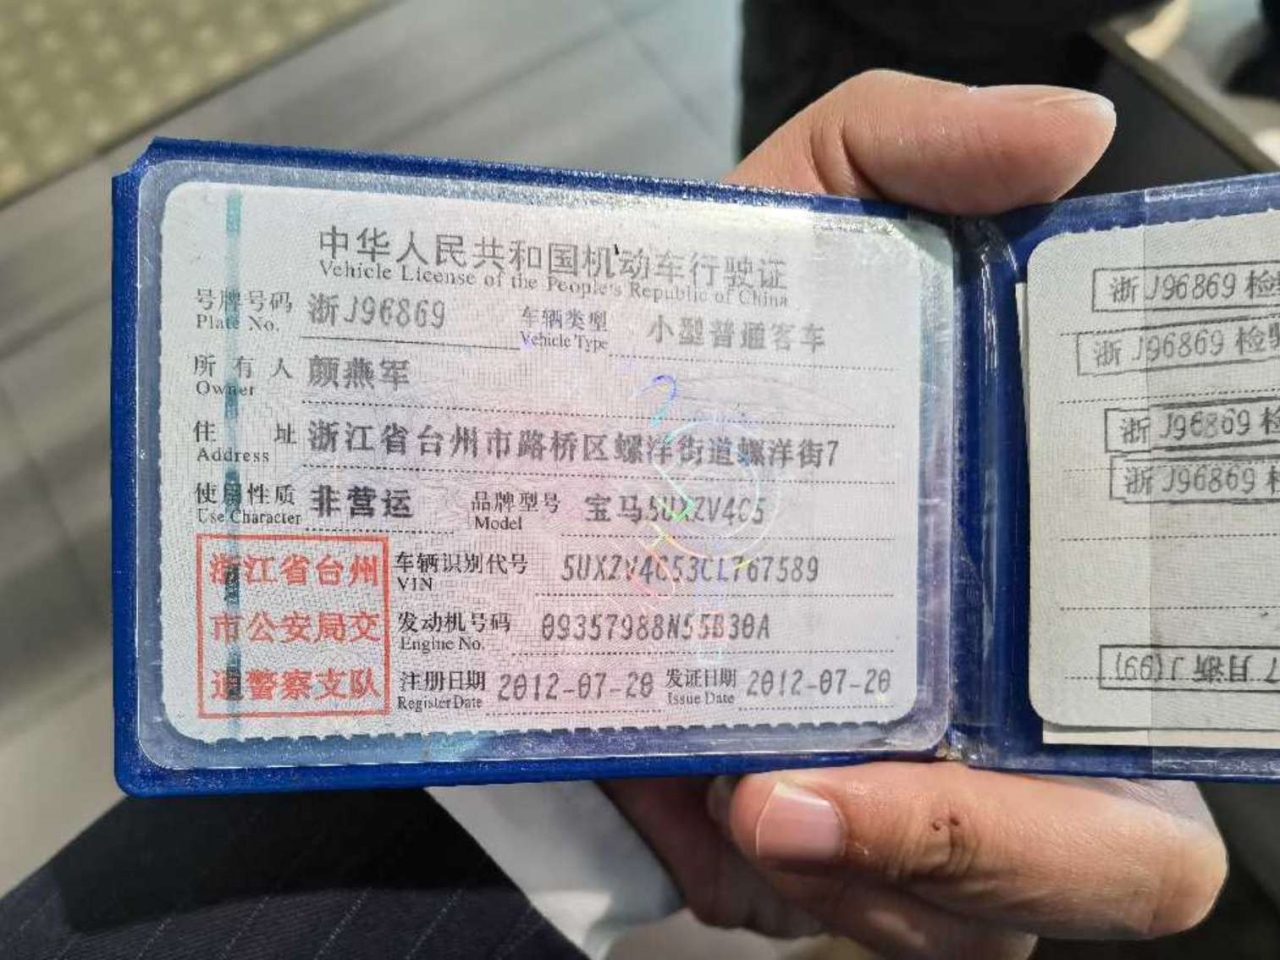 中华人民共和国机动车行驶证
Vehicle License of the People's Republic of China
号牌号码 浙J96869 车辆类型 小型普通客车
Plate No. Vehicle Type
所有人 颜燕军
Owner
住址 浙江省台州市路桥区螺洋街道螺洋街7
Address
使用性质 非营运 品牌型号 宝马5UXZV4C5
Use Character Model
浙江省台州
市公安局交
通警察支队
车辆识别代号 5UXZV4C53CL767589
VIN
发动机号码 09357988N55B30A
Engine No.
注册日期 2012-07-20 发证日期 2012-07-20
Register Date Issue Date
浙J96869 检
浙J96869 检验
浙J96869 检
浙J96869